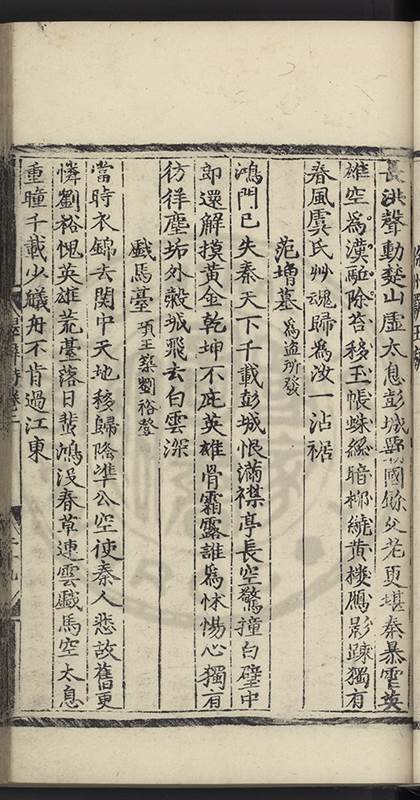 長洪聲動楚山虛太息彭城霸國餘父老更堪秦暴虐英
雄空為漢驅除苔移玉帳蛛絲暗柳繞黃樓鴈影踈獨有
春風虞氏艸魂歸為汝一沾裾
范增墓 為盜所發
鴻門已失秦天下千載彭城恨滿襟亭長空驚撞白璧中
郎還解摸黃金乾坤不庇英雄骨霜露誰為怵惕心獨有
彷徉塵垢外穀城飛去白雲深
戲馬臺 項王築劉裕登
當時衣錦去関中天地移歸隆準公空使秦人悲故舊更
憐劉裕愧英雄荒臺落日蜚鴻沒春草連雲戲馬空太息
重瞳千載少艤舟不肯過江東